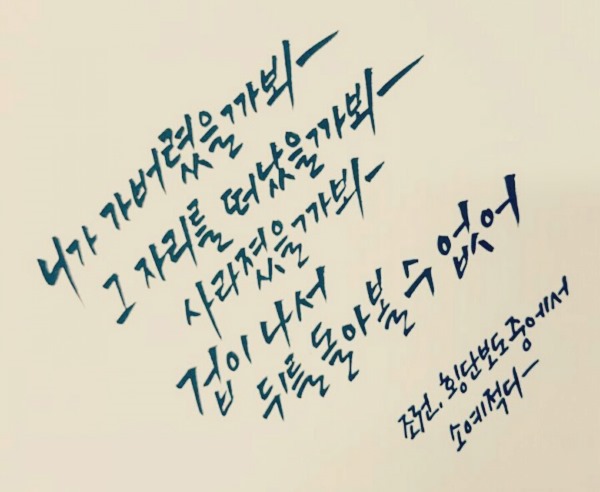 니가 가버렸을까봐
그 자리를 떠났을까봐
사라졌을까봐
겁이 나서
뒤를 돌아볼 수 없어
횡단보도 중에서
소예적다